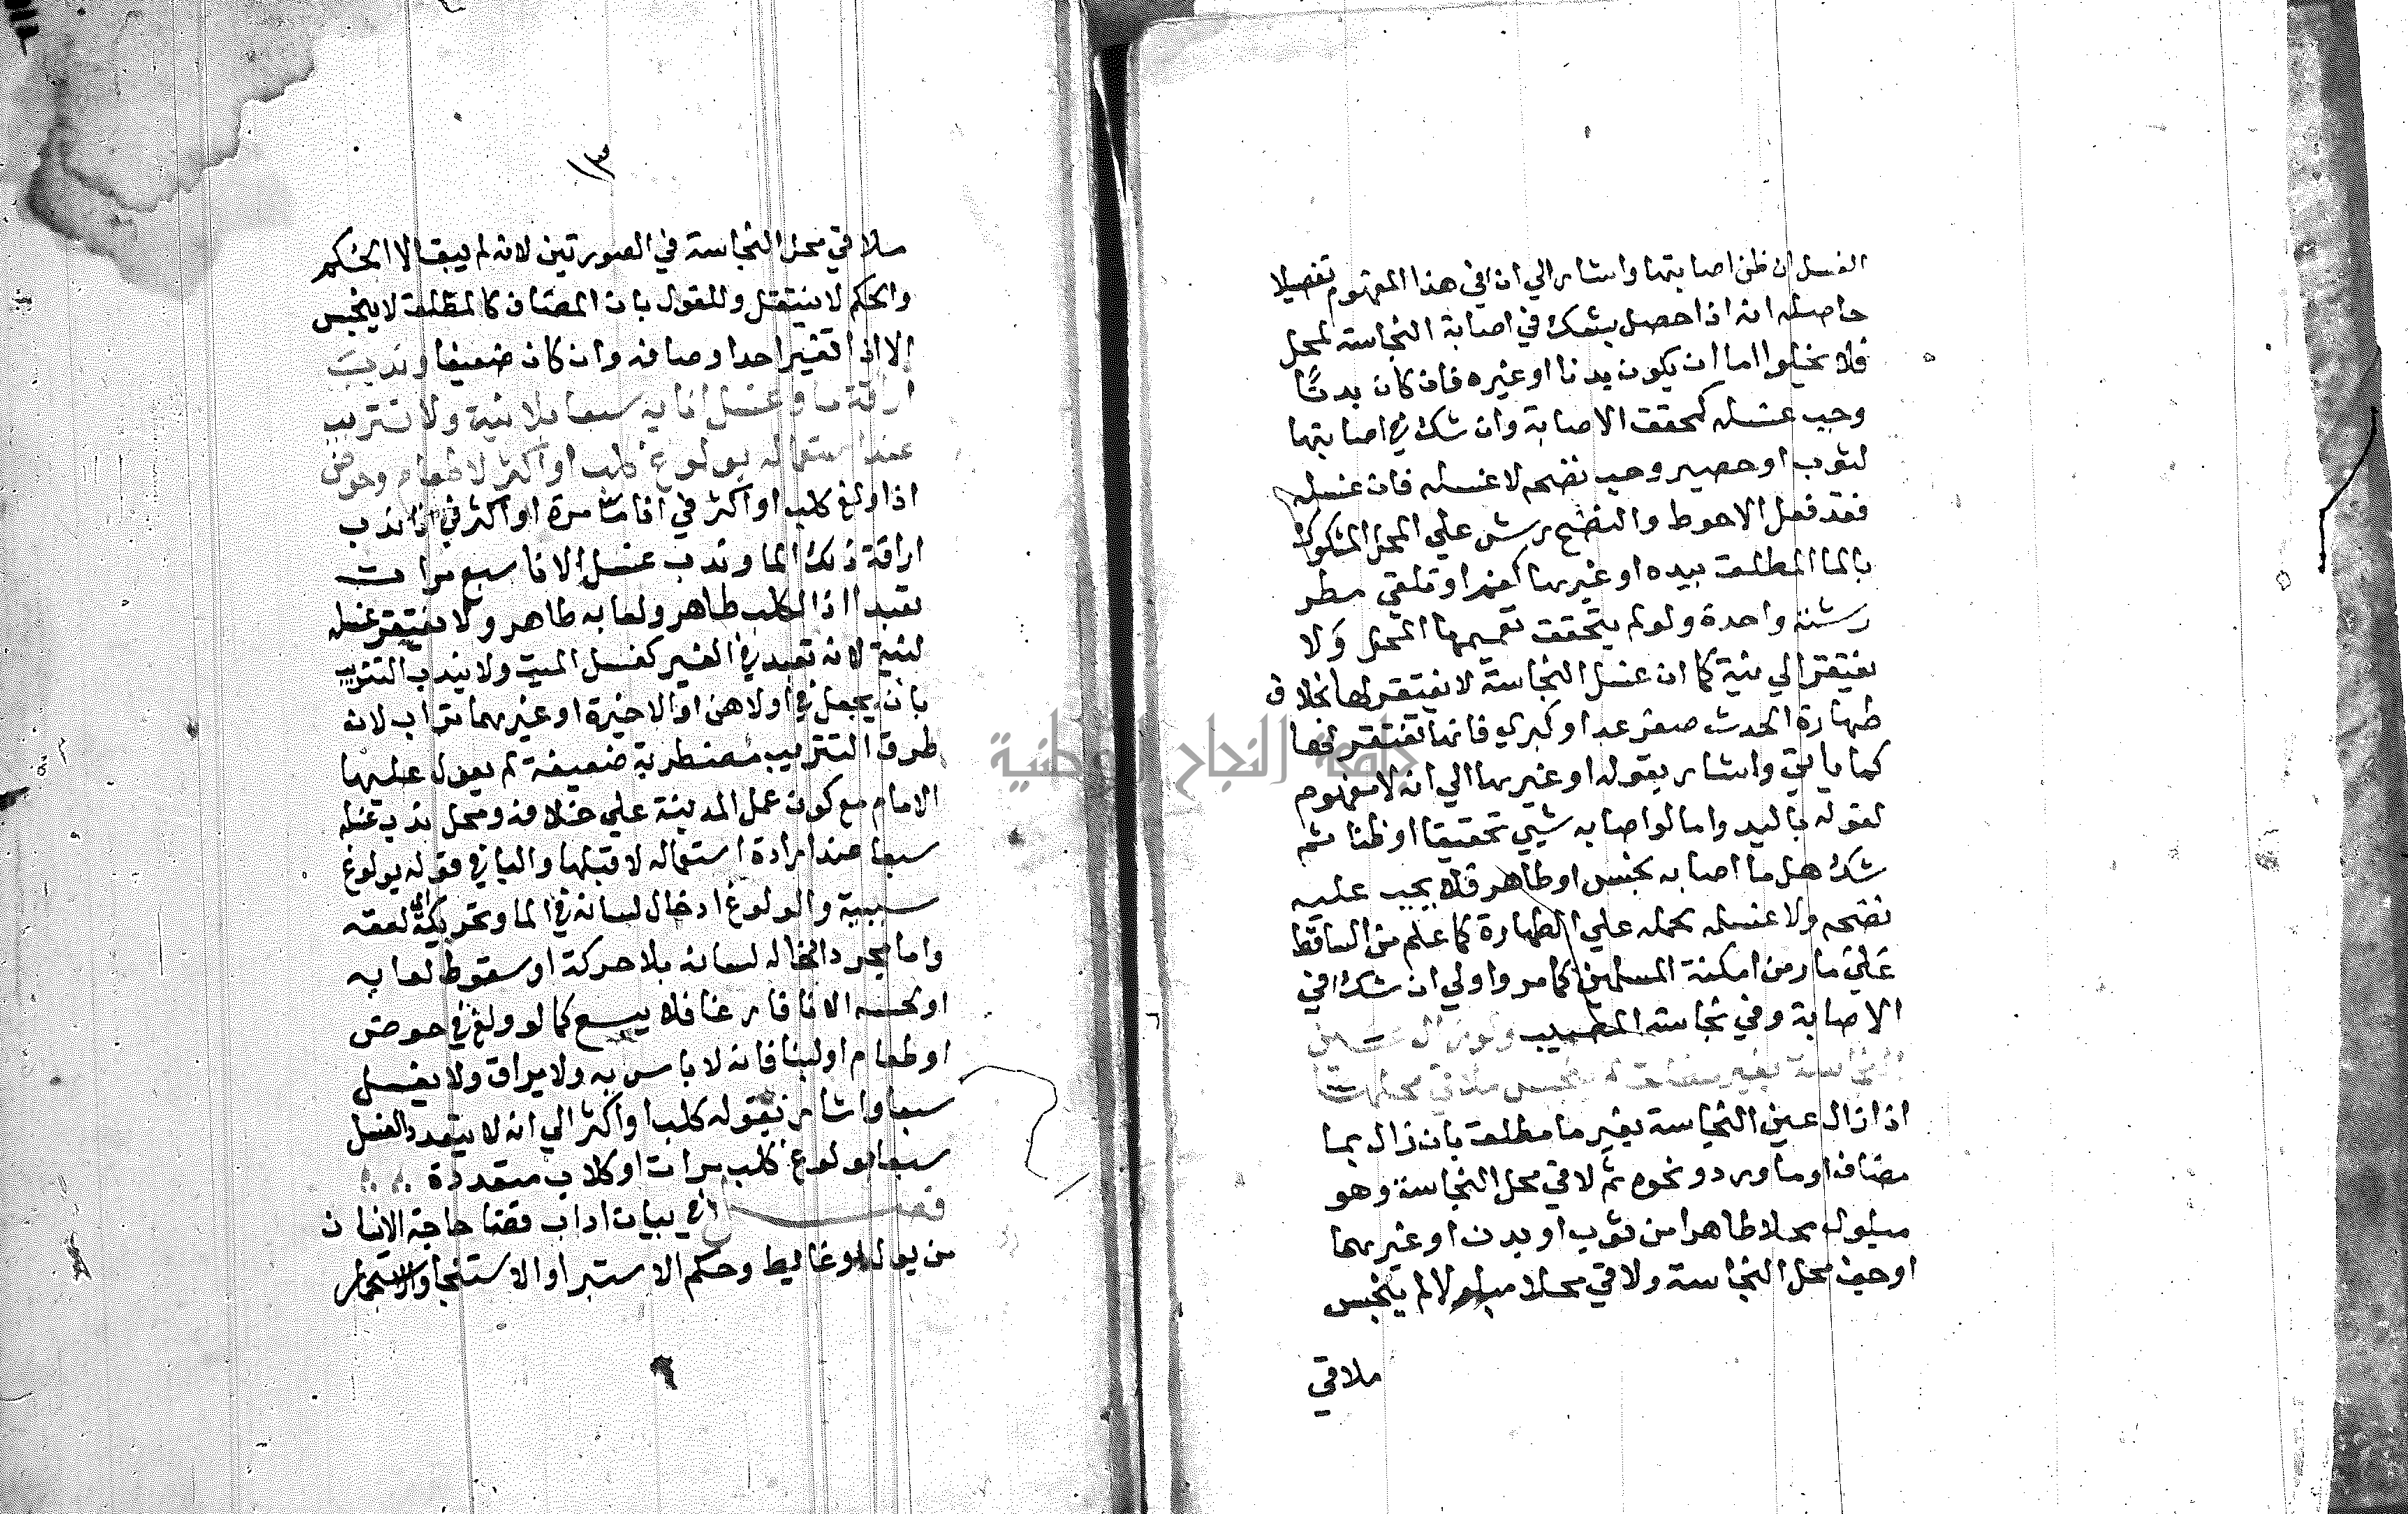 الغسل ان ظن اصابتها واشار الي ان في هذا المفهوم تفصيلا
حاصله انه اذا حصل يشك في اصابة النجاسة لمحل
فلا يخلوا اما ان يكون بدنا او غيره فان كان بدنًا
وجب غسله كمحقق الاصابة وان شك في اصابتها
لثوب او حصير وجب نضحه لا غسله فان غسله
فقد فعل الاحوط والنضح رش علي المحل المشكوك
بالما المطلق بيده او غيرها كفم او تلقي مطر
رشة واحدة ولو لم يتحقق تعميمها المحل ولا
يفتقر الي نية كما ان غسل النجاسة لا يفتقر لها بخلاف
طهارة الحدث صغري او كبري فانها تفتقر لها
كما ياتي واشار بقوله او غيرها الي انه لا مفهوم
لقوله باليد واما لو اصابه شيي تحقيقا او ظنا ثم
شك هل ما اصابه نجس او طاهر فلا يجب عليه
نضحه ولا غسله بحمله علي الطهارة كما علم من الساقط
علي مار من امكنة المسلمين كما مر واولي ان شك في
الاصابة وفي نجاسة المصيب ولو زال عين
النجاسة بغير مطلق لم ينجس ملاقي محلها
اذا زال عين النجاسة بغير ما مطلق بان زال بما
مضاف او ما ورد ونحوه ثم لاقي محل النجاسة وهو
مبلول محلا طاهرا من ثوب او بدن او غيرهما
او جف محل النجاسة ولاقي محلا مبلولا لم ينجس
ملاقي
١٣
ملاقي محل النجاسة في الصورتين لانه لم يبق الا الحكم
والحكم لا ينتقل وللقول بان المضاف كالمطلق لا ينجس
الا اذا تغير احد اوصافه وان كان ضعيفا وندب
اراقة ما وغسل انايه سبعا بلا نية ولا تتريب
عند استعماله بولوغ كلب او اكثر لا طعام وحوض
اذا ولغ كلب او اكثر في انا ما مرة او اكثر ندب
اراقة ذلك الما وندب غسل الانا سبع مرات
تعبدا اذ الكلب طاهر ولعابه طاهر ولا يفتقر غسله
لنية لانه تعبد في الغير كغسل الميت ولا يندب التتريب
بان يجعل في اولاهن او الاخيرة او غيرهما تراب لان
طرق التتريب مضطربة ضعيفة لم يعول عليها
الامام مع كون عمل المدينة علي خلافه ومحل ندب غسله
سبعا عند ارادة استعماله لا قبلها والبا في قوله بولوغ
سببية والولوغ ادخال لسانه في الما وتحريكه اي لعقه
واما مجرد ادخاله لسانه بلا حركة او سقوط لعابه
او لحسه الانا فارغا فلا يسبع كما لو ولغ في حوض
او طعام او لبنا فانه لا باس به ولا يراق ولا يغسل
سبعا واشار بقوله كلب او اكثر الي انه لا يتعدد الغسل
سبعا بولوغ كلب مرات او كلاب متعددة
فصل في بيان اداب قضا حاجة الانسان
من بول او غايط وحكم الاستبرا والاستنجا والاستجمار
جامعة النجاح الوطنية